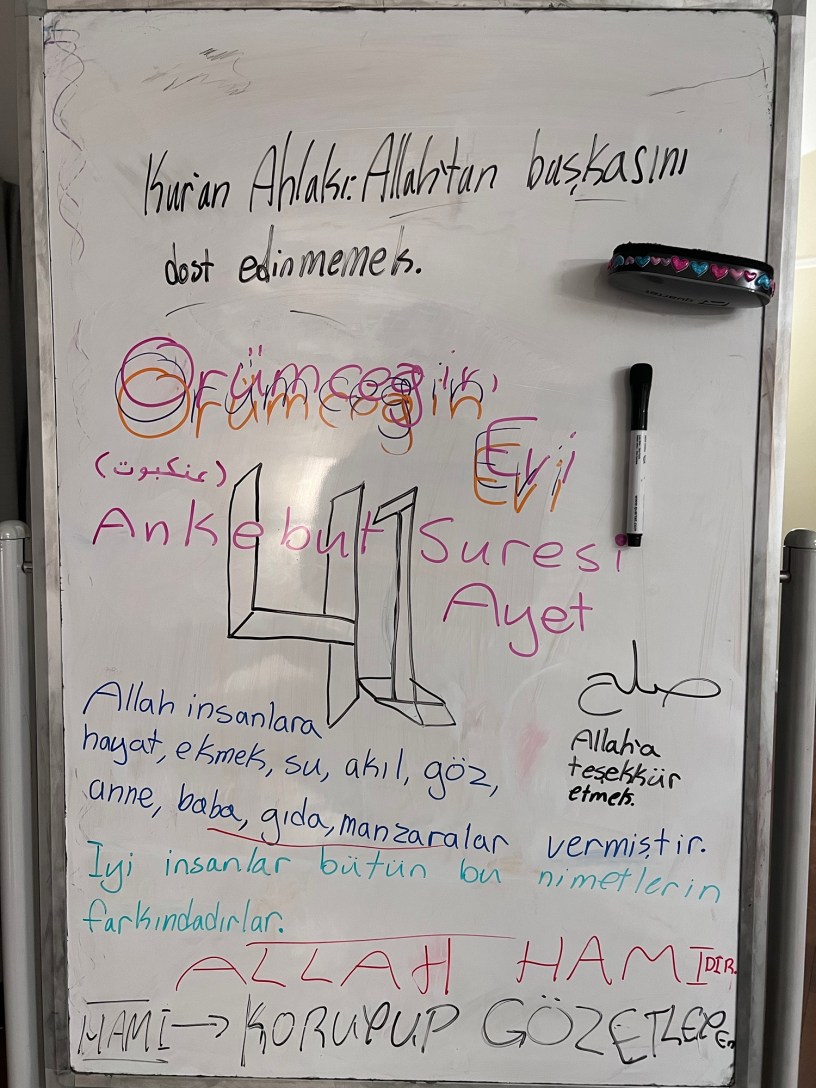 Kur'an Ahlakı: Allah'tan başkasını
dost edinmemek.
Örümceğin
Evi
(عنكبوت)
Ankebut Suresi
41 Ayet
صلح
Allah'a
teşekkür
etmek.
Allah insanlara
hayat, ekmek, su, akıl, göz,
anne, baba, gıda, manzaralar vermiştir.
İyi insanlar bütün bu nimetlerin
farkındadırlar.
ALLAH HAMİDİR.
HAMİ → KORUYUP GÖZETLEYEn